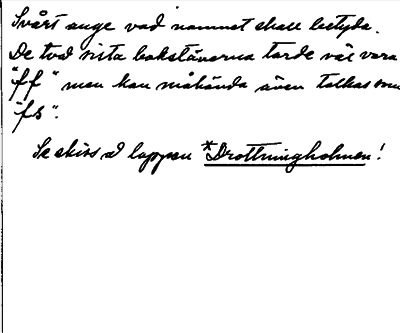 Svårt ange vad namnet skall betyda.
De två sista bokstäverna torde väl vara
"ff" men kan måhända även tolkas som
"fs".
Se skiss å lappen *Drottningholmen!